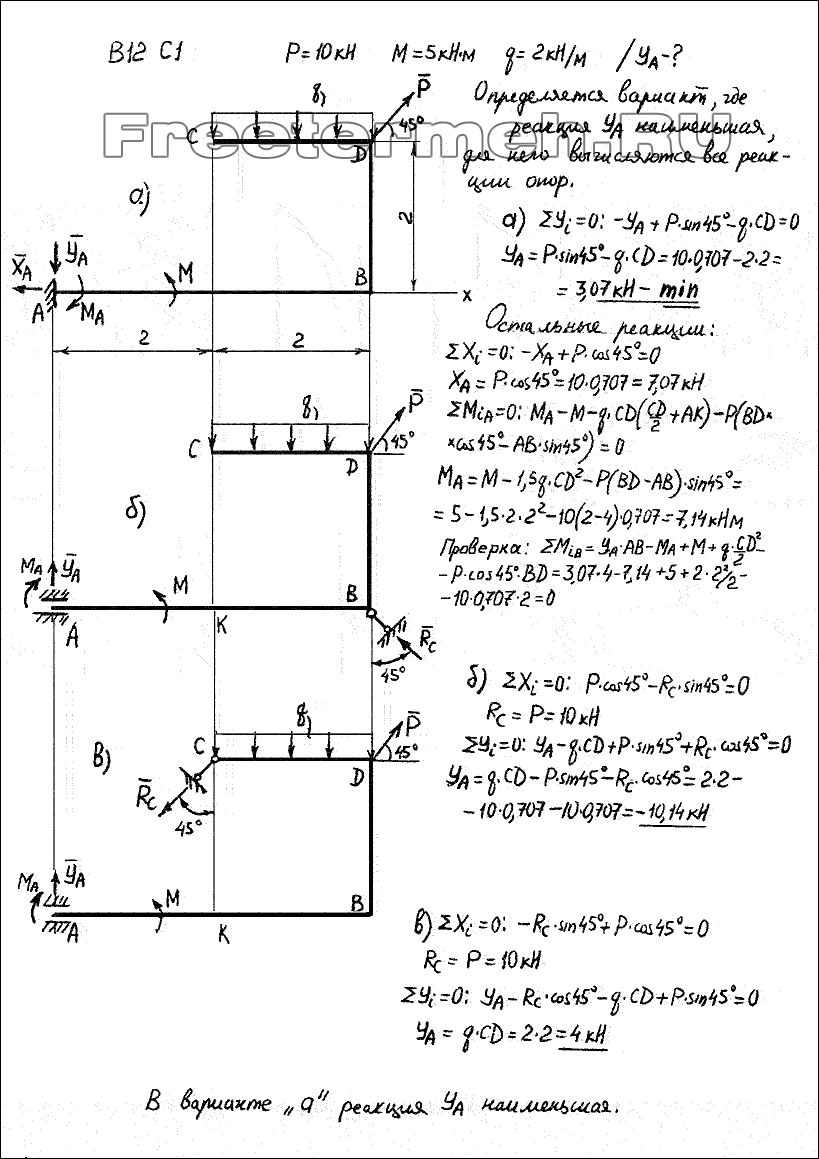 В12 С1 P=10кН M=5кН·м q=2кН/м /YA-?
Freetermeh.RU
Определяется вариант, где
реакция YA наименьшая,
для него вычисляются все реак-
ции опор.
q)
P̅
C
45°
D
а)
2
Y̅A
X̅A
M
B
A
MA
x
2
2
а) ΣYi=0: -YA+P·sin45°-q·CD=0
YA=P·sin45°-q·CD=10·0,707-2·2=
=3,07кН-min
Остальные реакции:
ΣXi=0: -XA+P·cos45°=0
XA=P·cos45°=10·0,707=7,07кН
ΣMiA=0: MA-M-q·CD(CD/2+AK)-P(BD×
×cos45°-AB·sin45°)=0
MA=M-1,5q·CD²-P(BD-AB)·sin45°=
=5-1,5·2·2²-10(2-4)·0,707=7,14кНм
Проверка: ΣMiB=YA·AB-MA+M+q·CD²/2-
-P·cos45°·BD=3,07·4-7,14+5+2·2²/2-
-10·0,707·2=0
q)
P̅
C
45°
D
б)
MA
Y̅A
M
B
A
K
R̅C
45°
б) ΣXi=0: P·cos45°-RC·sin45°=0
RC=P=10кН
ΣYi=0: YA-q·CD+P·sin45°+RC·cos45°=0
YA=q·CD-P·sin45°-RC·cos45°=2·2-
-10·0,707-10·0,707=-10,14кН
q)
P̅
C
45°
D
в)
R̅C
45°
MA
Y̅A
M
B
A
K
в) ΣXi=0: -RC·sin45°+P·cos45°=0
RC=P=10кН
ΣYi=0: YA-RC·cos45°-q·CD+P·sin45°=0
YA=q·CD=2·2=4кН
В варианте „а" реакция YA наименьшая.